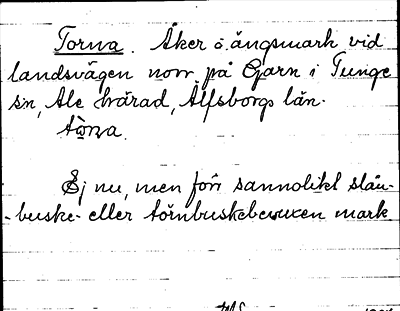 Torna. Åker o. ängsmark vid
landsvägen norr på Garn i Tunge
sn, Ale härad, Älfsborgs län.
tò̱rna.
Ej nu, men förr sannolikt slån-
-buske- eller törnbuskebevuxen mark